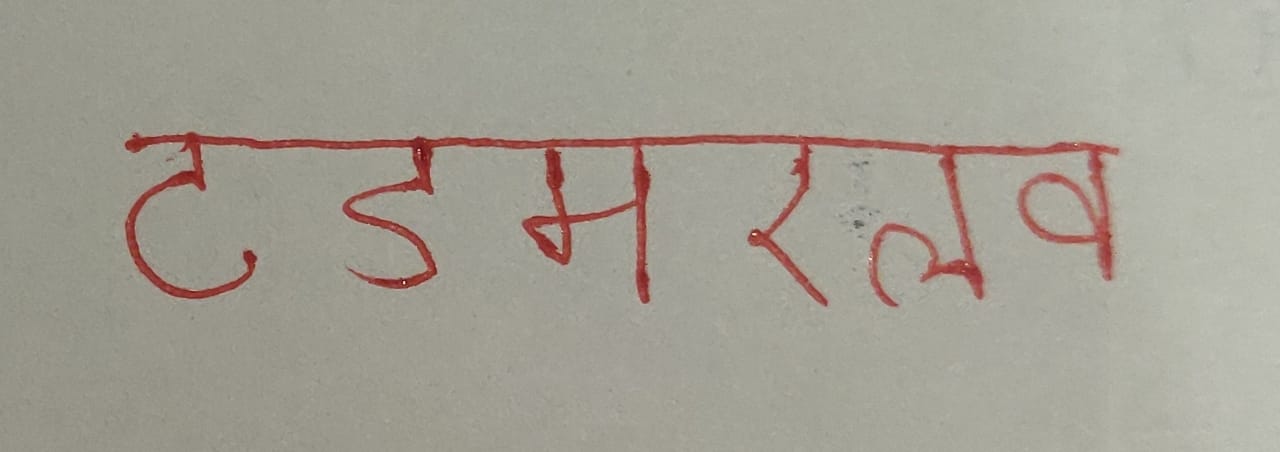 टडमरलव